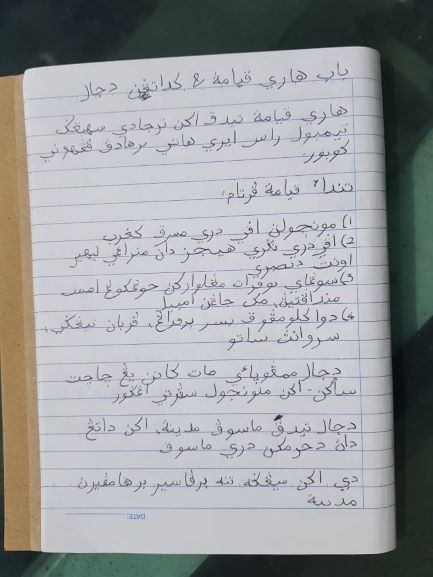 باب هاري قيامة & كداتڠن دجال
هاري قيامة تيدق اكن ترجادي سهيڠݢ
تيمبول راس ايري هاتي ترهادڤ ڤڠهوني
کوبور.
تندا² قيامة ڤرتام:
1) مونچولن اڤي دري مشرق کمغرب
2) اڤي دري نݢري حيجاز دان منراڠي ليهير
اونت د بصرى
3) سوڠاي يوفرات مڠلوارکن ݢونوڠ امس
منداڤتيڽ، مک جاڠن امبيل
4) دوا کلومڤوق بسر برڤراڠ، قربان تيڠݢي،
سروانڽ ساتو
دجال ممڤوڽاٴي مات کانن يڠ چاچت
ساکن² اکن منونجول سڤرتي اڠݢور
دجال تيدق ماسوق مدينة، اکن داتڠ
دان دحرمکن دري ماسوق
دي اکن سيڠݢه تنه برڤاسير برهمڤيرن
مدينة
DATE: